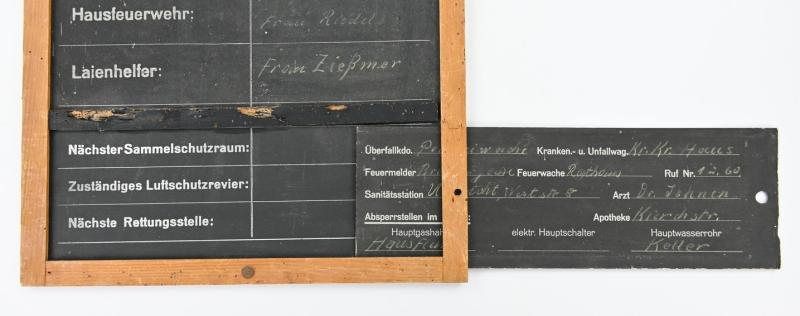 Hausfeuerwehr: Frau Riedel
Laienhelfer: Frau Zießmer
Nächster Sammelschutzraum:
Zuständiges Luftschutzrevier:
Nächste Rettungsstelle:
Überfallkdo. Kranken.- u. Unfallwag. Kr. Kr. Haus
Feuermelder Feuerwache Rathaus Ruf Nr.
Sanitätsstation Arzt Dr.
Absperrstellen im Apotheke Kirchstr.
Hauptgashah elektr. Hauptschalter Hauptwasserrohr
Hausflu Keller